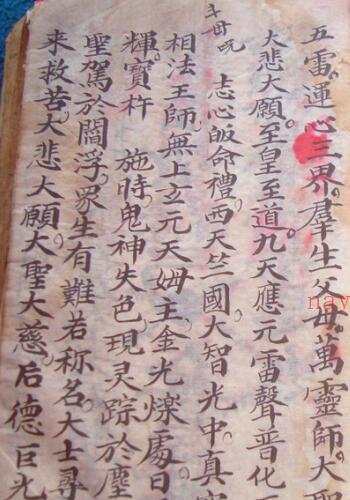 五雷。運心三界。羣生父母。萬靈師大
大悲大願。至皇至道。九天應元雷聲普化
斗母呪
志心皈命禮。西天竺國大智光中真
相法王師。無上玄元天姆主。金光爍處。日
輝寶杵 施時。鬼神失色。現灵踪於塵
聖駕於閻浮。眾生有難若称名。大士尋
来救苦。大悲大願。大聖大慈。后德巨光
nav